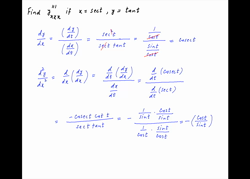 Find y''' xxx if x = sect, y = tant
dy/dx = (dy/dt)/(dx/dt) = sec²t/(sect tant) = (1/cost)/(sint/cost) = cosect
d²y/dx² = d/dx (dy/dx) = d/dt (dy/dx)/(dx/dt) = d/dt (cosect)/(d/dt (sect))
= -cosect cot t/(sect tant) = - (1/sint · cost/sint)/(1/cost · sint/cost) = -(cost/sint)